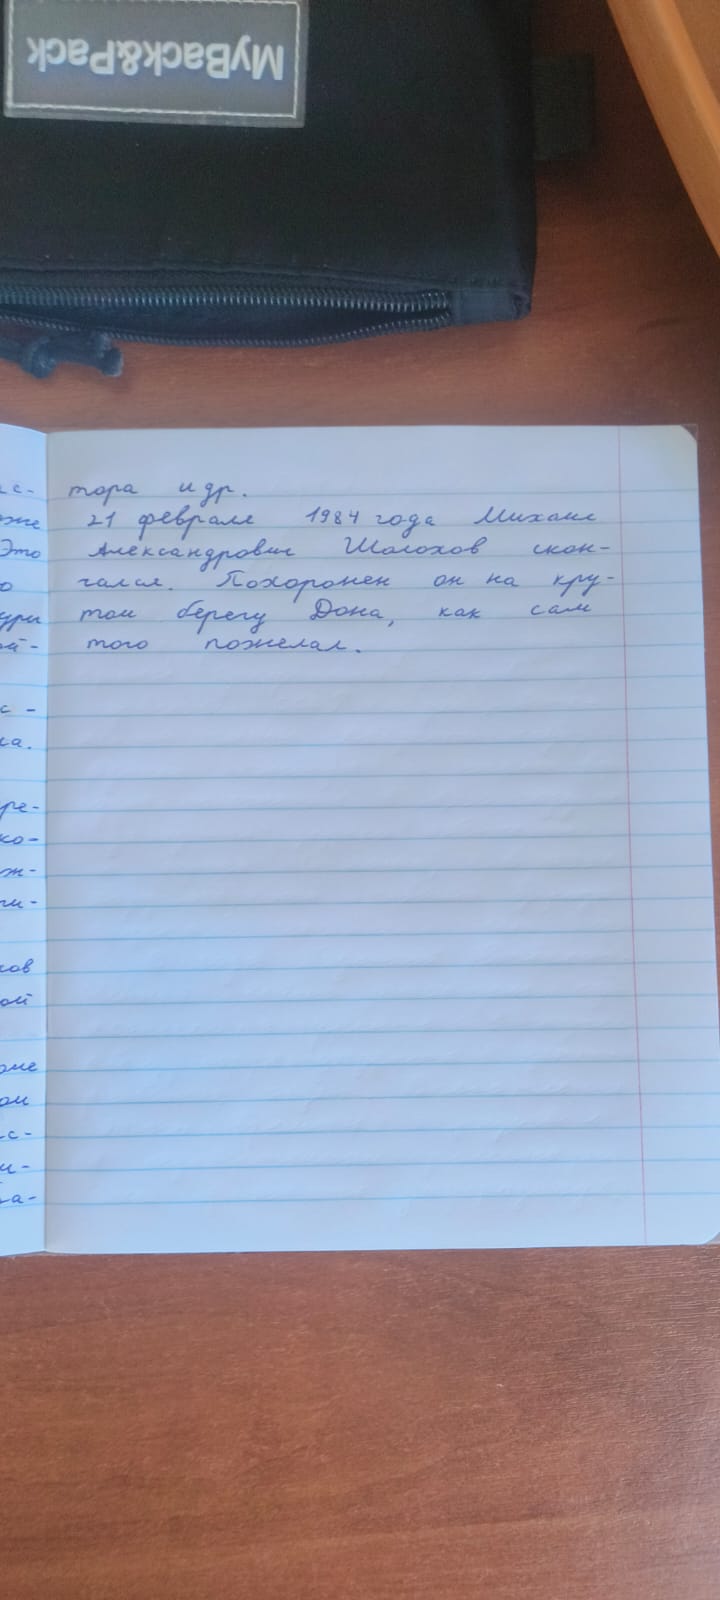 MyBack&Pack
тора и др.
21 февраля 1984 года Михаил
Александрович Шолохов скон-
чался. Похоронен он на кру-
том берегу Дона, как сам
того пожелал.
Это
ре-
ко-
ж-
ков
ой
ом
с-
и-